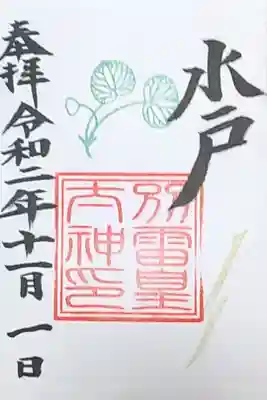 水戸
別雷皇
太神印
奉拝 令和二年十一月一日